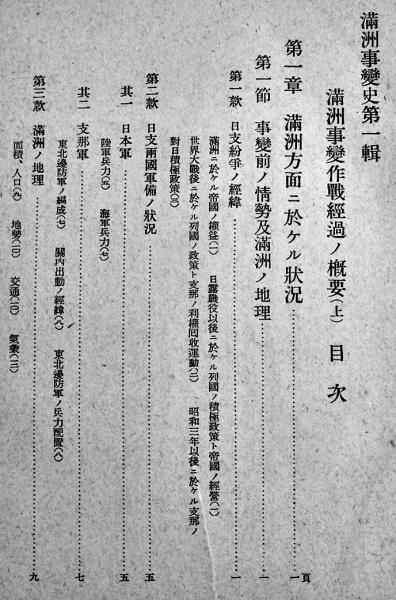 滿洲事變史第一輯
滿洲事變作戰經過ノ槪要(上) 目次
第一章 滿洲方面ニ於ケル狀況…………一頁
第一節 事變前ノ情勢及滿洲ノ地理…………一
第一款 日支紛爭ノ經緯…………一
滿洲ニ於ケル帝國ノ權益(一) 日露戰役以後ニ於ケル列國ノ積極政策ト帝國ノ經營(一)
世界大戰後ニ於ケル列國ノ政策ト支那ノ利權回收運動(二) 昭和三年以後ニ於ケル支那ノ
對日積極政策(三)
第二款 日支兩國軍備ノ狀況…………五
其一 日本軍…………五
陸軍兵力(五) 海軍兵力(七)
其二 支那軍…………七
東北邊防軍ノ編成(七) 關內出動ノ經緯(八) 東北邊防軍ノ兵力配置(八)
第三款 滿洲ノ地理…………九
面積、人口(九) 地勢(一〇) 交通(一〇) 氣象(一一)